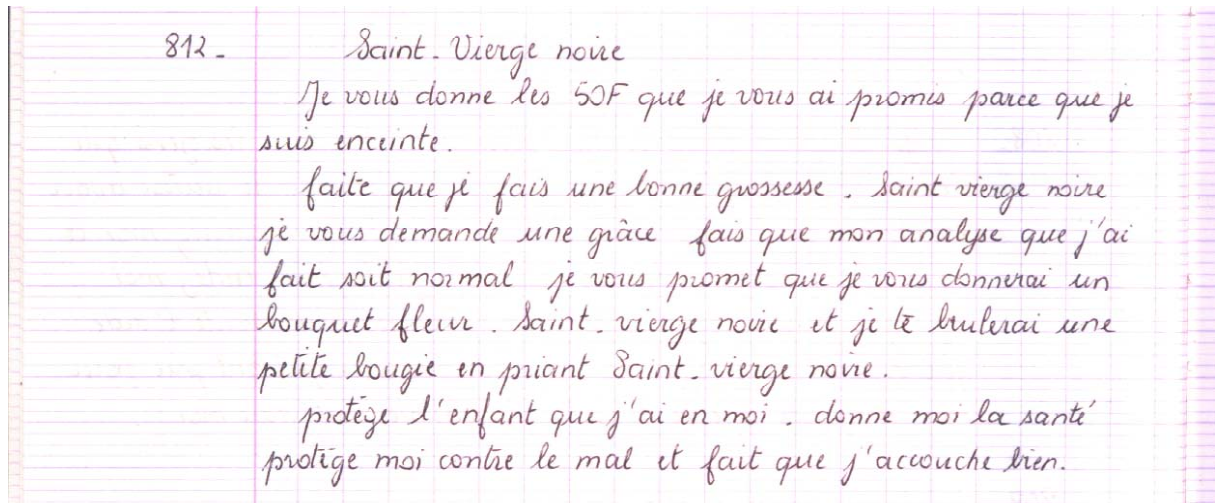 812_ Saint_Vierge noire
Je vous donne les 50F que je vous ai promis parce que je
suis enceinte.
faite que je fais une bonne grossesse. Saint vierge noire
je vous demande une grâce fais que mon analyse que j'ai
fait soit normal je vous promet que je vous donnerai un
bouquet fleur. Saint_vierge noire et je te brulerai une
petite bougie en priant Saint_vierge noire.
protège l'enfant que j'ai en moi. donne moi la santé
protège moi contre le mal et fait que j'accouche bien.